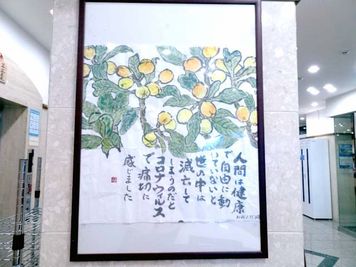 人間は健康
で自由に動
いていないと
世の中は
滅亡して
しまうのだと
コロナウイルス
で痛切に
感じました